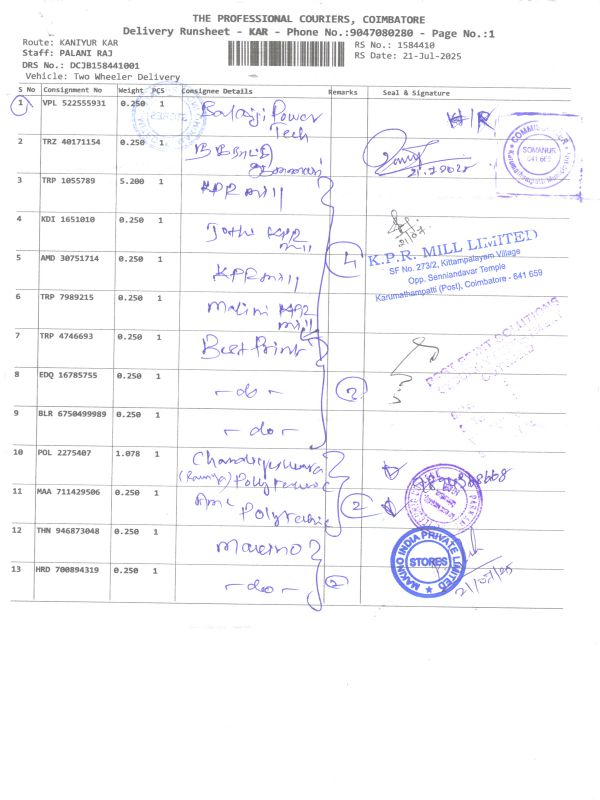 THE PROFESSIONAL COURIERS, COIMBATORE
Delivery Runsheet - KAR - Phone No.:9047080280 - Page No.:1
Route: KANIYUR KAR
Staff: PALANI RAJ
DRS No.: DCJB158441001
Vehicle: Two Wheeler Delivery
RS No.: 1584410
RS Date: 21-Jul-2025
S No Consignment No Weight PCS Consignee Details Remarks Seal & Signature
1 VPL 522555931 0.250 1 Balaji Power
Tech
2 TRZ 40171154 0.250 1
21.7.2025
SOMANUR
641 659
3 TRP 1055789 5.200 1 KPR mill
4 KDI 1651010 0.250 1 Jothi KPR
mill
21/07
5 AMD 30751714 0.250 1 KPR mill
4
K.P.R. MILL LIMITED
SF No. 273/2, Kittampalayam Village
Opp. Senniandavar Temple
Karumathampatti (Post), Coimbatore - 641 659
6 TRP 7989215 0.250 1 Malini KPR
mill
7 TRP 4746693 0.250 1 Best Print
BEST PRINT SOLUTIONS
8 EDQ 16785755 0.250 1 - do -
3
9 BLR 6750499989 0.250 1 - do -
10 POL 2275407 1.078 1
Polytechnic
11 MAA 711429506 0.250 1
Polytechnic
2
12 THN 946873048 0.250 1 Makino
MAKINO INDIA PRIVATE LIMITED
STORES
13 HRD 700894319 0.250 1 - do -
2
21/07/25